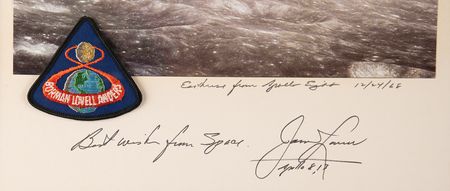 Earthrise from Apollo Eight 12/24/68
BORMAN LOVELL ANDERS
Best wishes from Space.
James Lovell
Apollo 8, 13